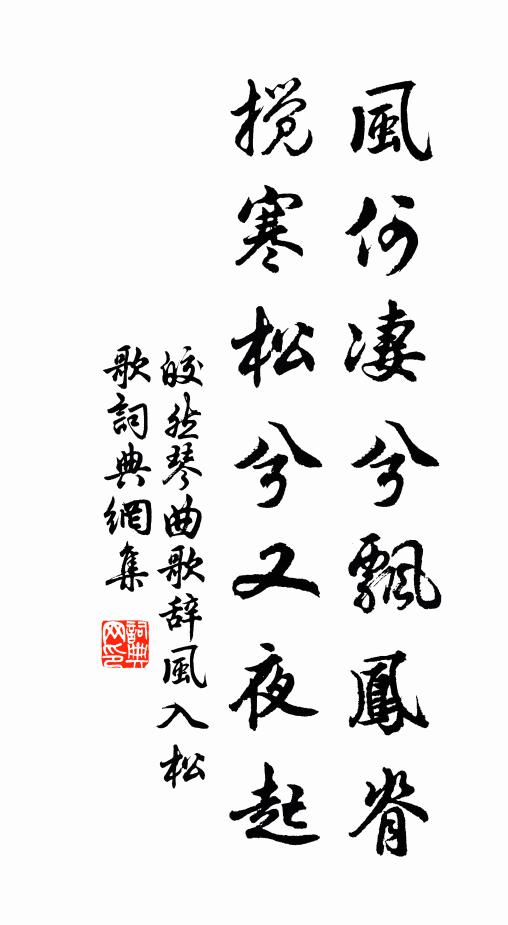 風何凄兮飄鳳脊
攪寒松兮又夜起
皎然琴曲歌辞風入松
歌詞典網集
詞典网印